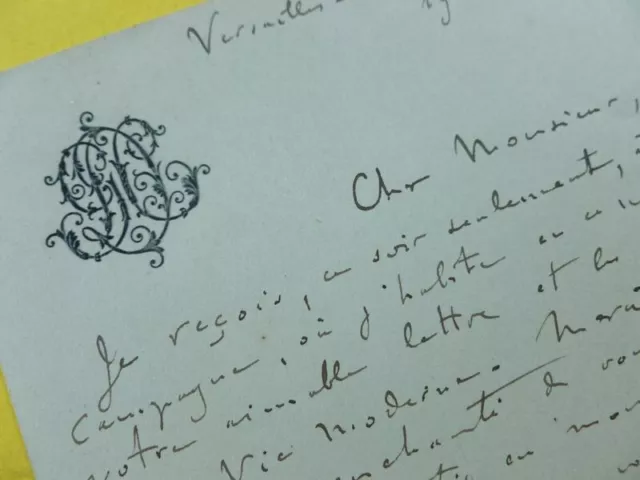 Versailles 19
Cher Monsieur,
Je reçois, ce soir seulement, à
campagne, où j'habite en ce
votre aimable lettre et les
Vie moderne. Merci
enchanté de vou
en mon